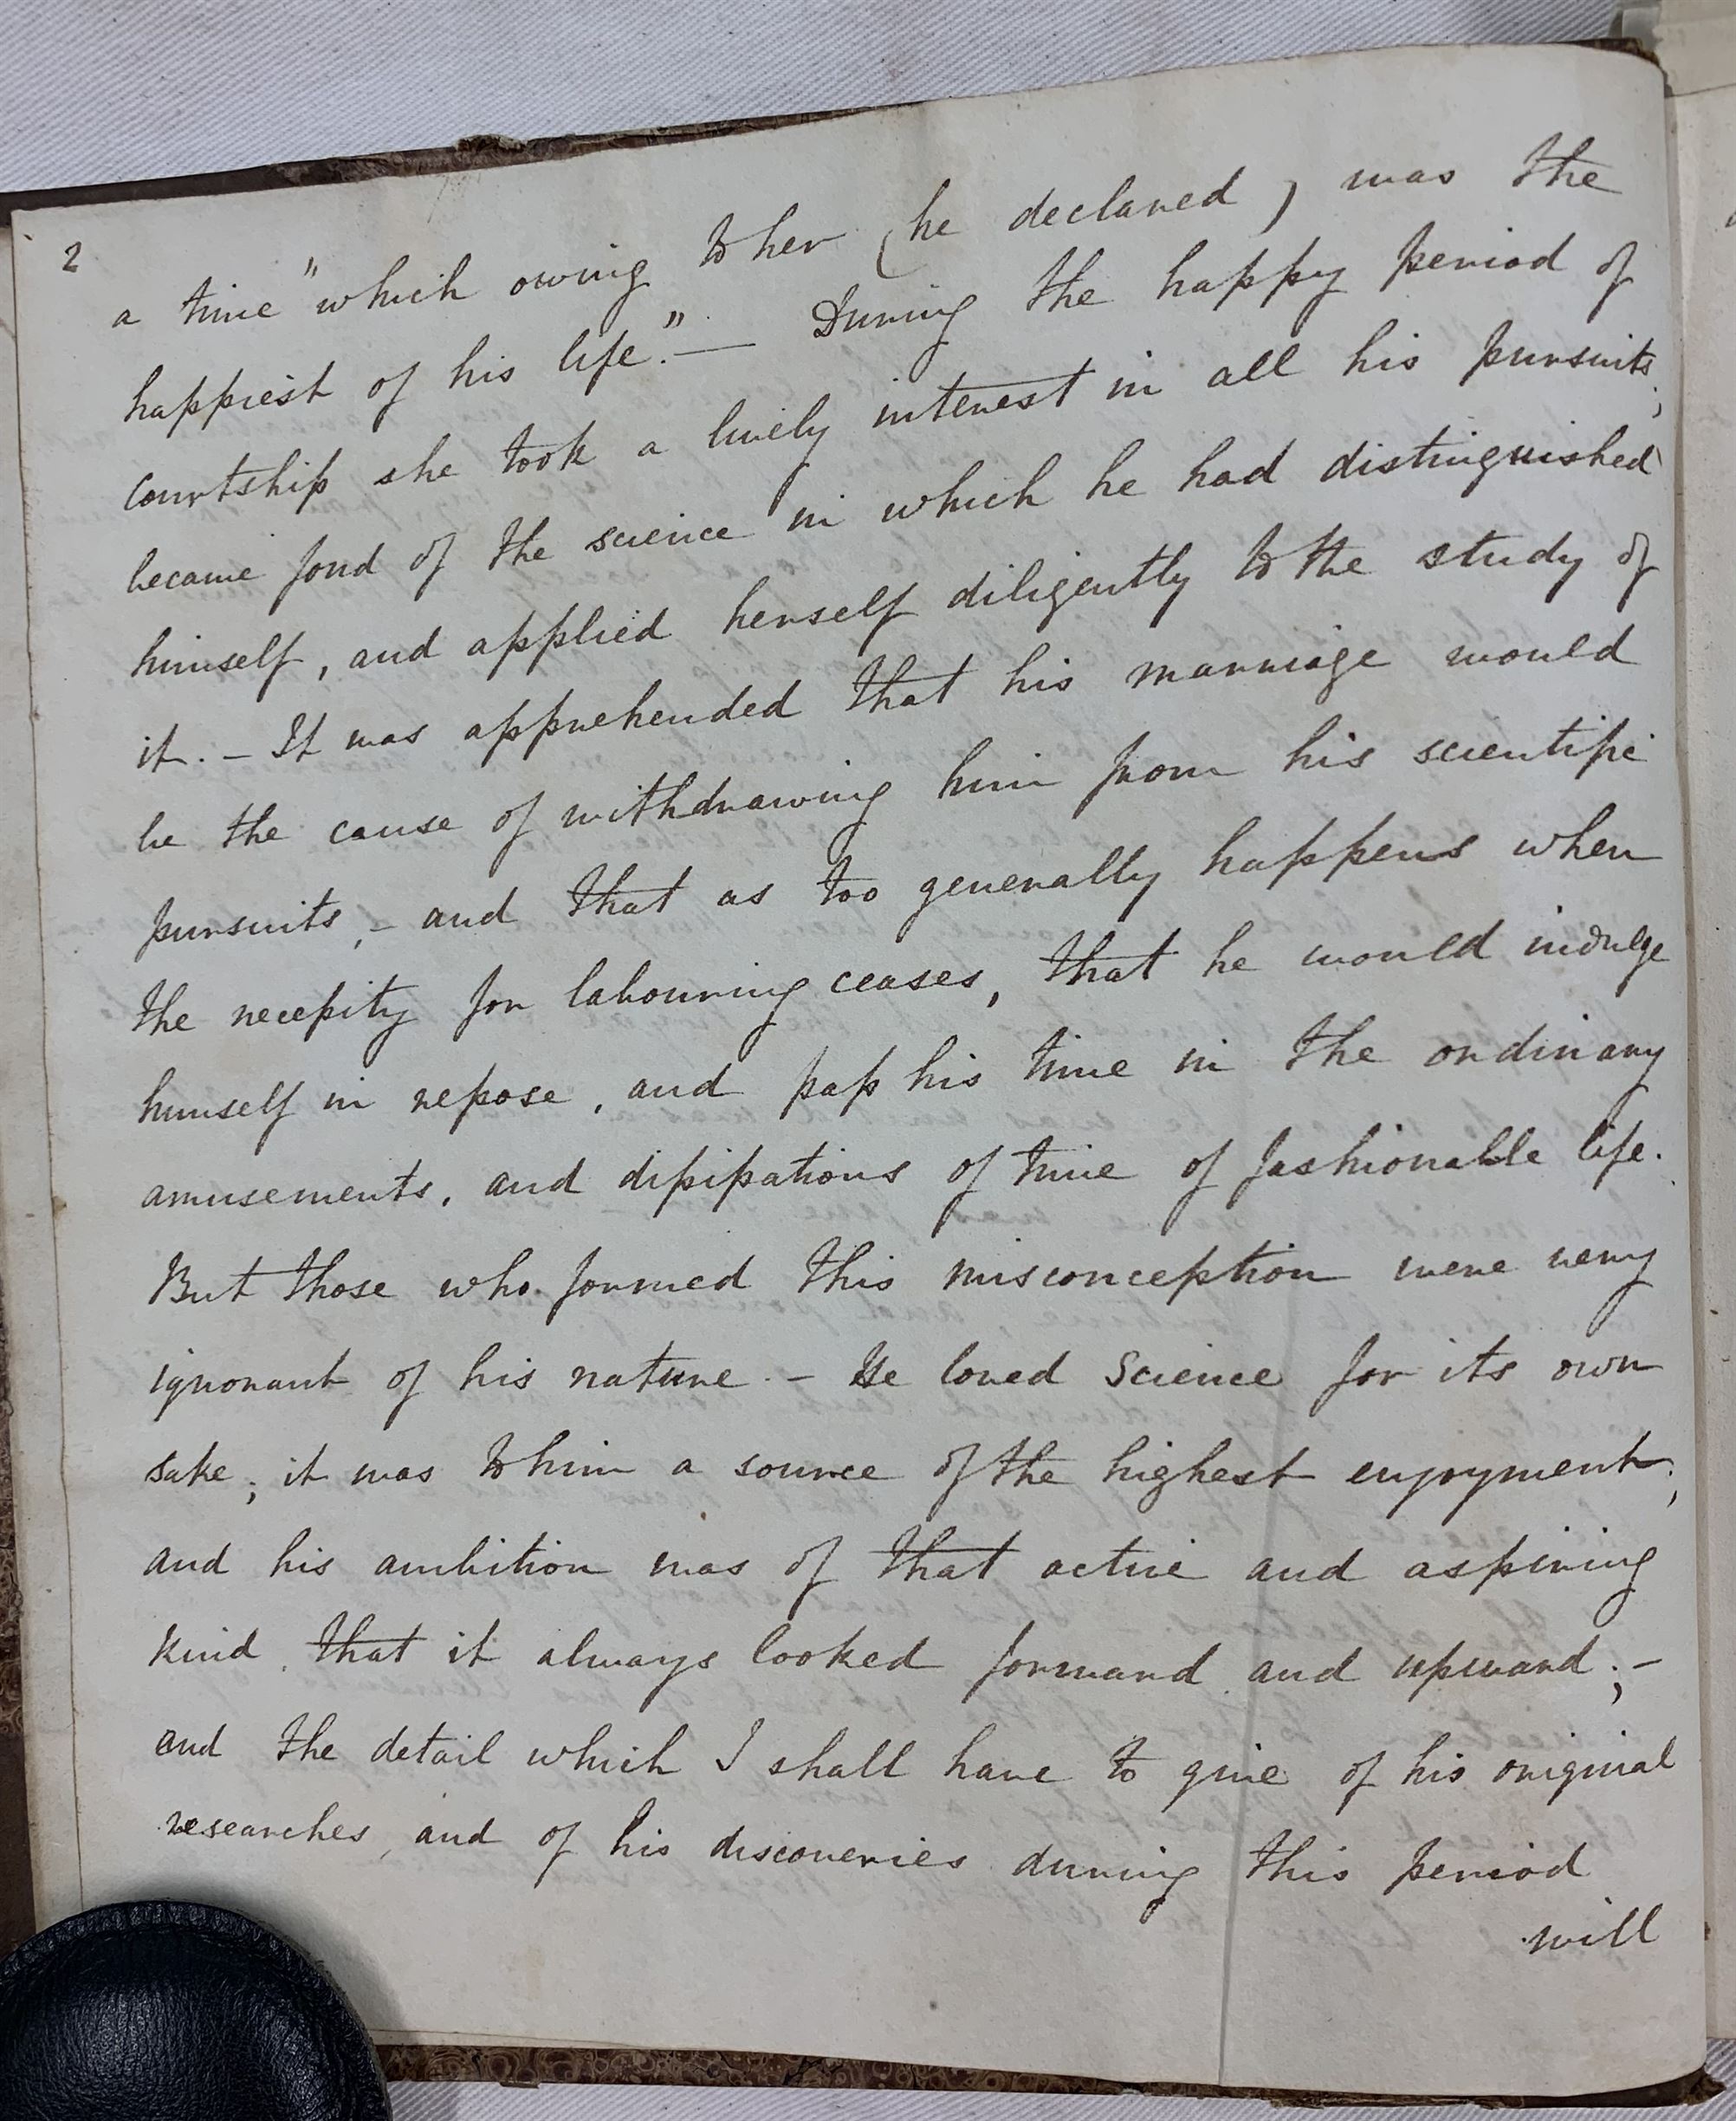 2
a time "which owing to her (he declared) was the
happiest of his life." — During the happy period of
courtship she took a lively interest in all his pursuits;
became fond of the science in which he had distinguished
himself, and applied herself diligently to the study of
it. - It was apprehended that his marriage would
be the cause of withdrawing him from his scientific
pursuits, - and that as too generally happens when
the necessity for labouring ceases, that he would indulge
himself in repose, and pass his time in the ordinary
amusements, and dissipations of time of fashionable life.
But those who formed this misconception were very
ignorant of his nature. - He loved Science for its own
sake; it was to him a source of the highest enjoyment;
and his ambition was of that active and aspiring
kind, that it always looked forward and upward; -
and the detail which I shall have to give of his original
researches, and of his discoveries during this period
will